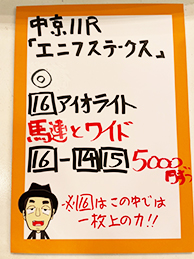 中京11R
「エニフステークス」
◎
16アイオライト
馬連とワイド
16-14 15 5000円ずつ
※16はこの中では
一枚上の力!!